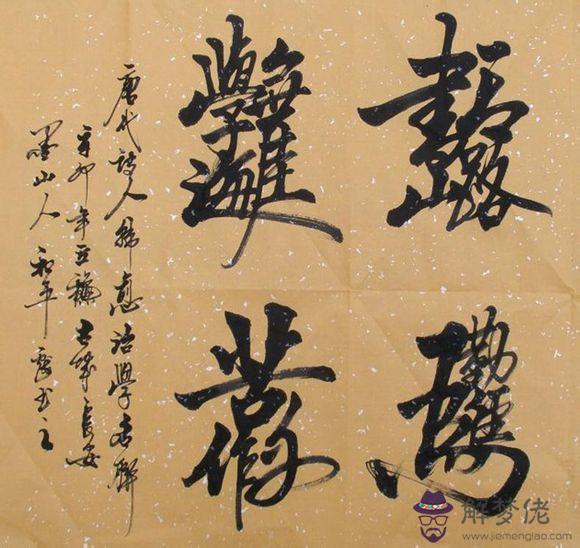 書山有路
勤為徑
學海無涯
苦作舟
唐代詩人韓愈治學名聯
辛卯年穐古城長安
墨山人和平書之
解梦佬
www.jiemenglao.com